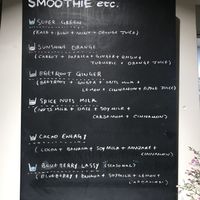 SMOOTHIE etc.
SUPER GREEN
(KALE + MINT + ORANGE JUICE)
SUNSHINE ORANGE
(CARROT + PAPAYA + GINGER +
TURMERIC + ORANGE JUICE)
BEETROOT GINGER
(BEETROOT + GINGER + NUTS MILK +
LEMON + CINNAMON + APPLE JUICE)
SPICE NUTS MILK
(NUTS MILK + DATE + SOY MILK +
CARDAMOM + CINNAMON)
CACAO ENERGY
(COCOA + BANANA + SOY MILK + +
CINNAMON)
BLUEBERRY LASSY (SEASONAL)
(BLUEBERRY + BANANA + SOY MILK + LEMON +
CARDAMOM)